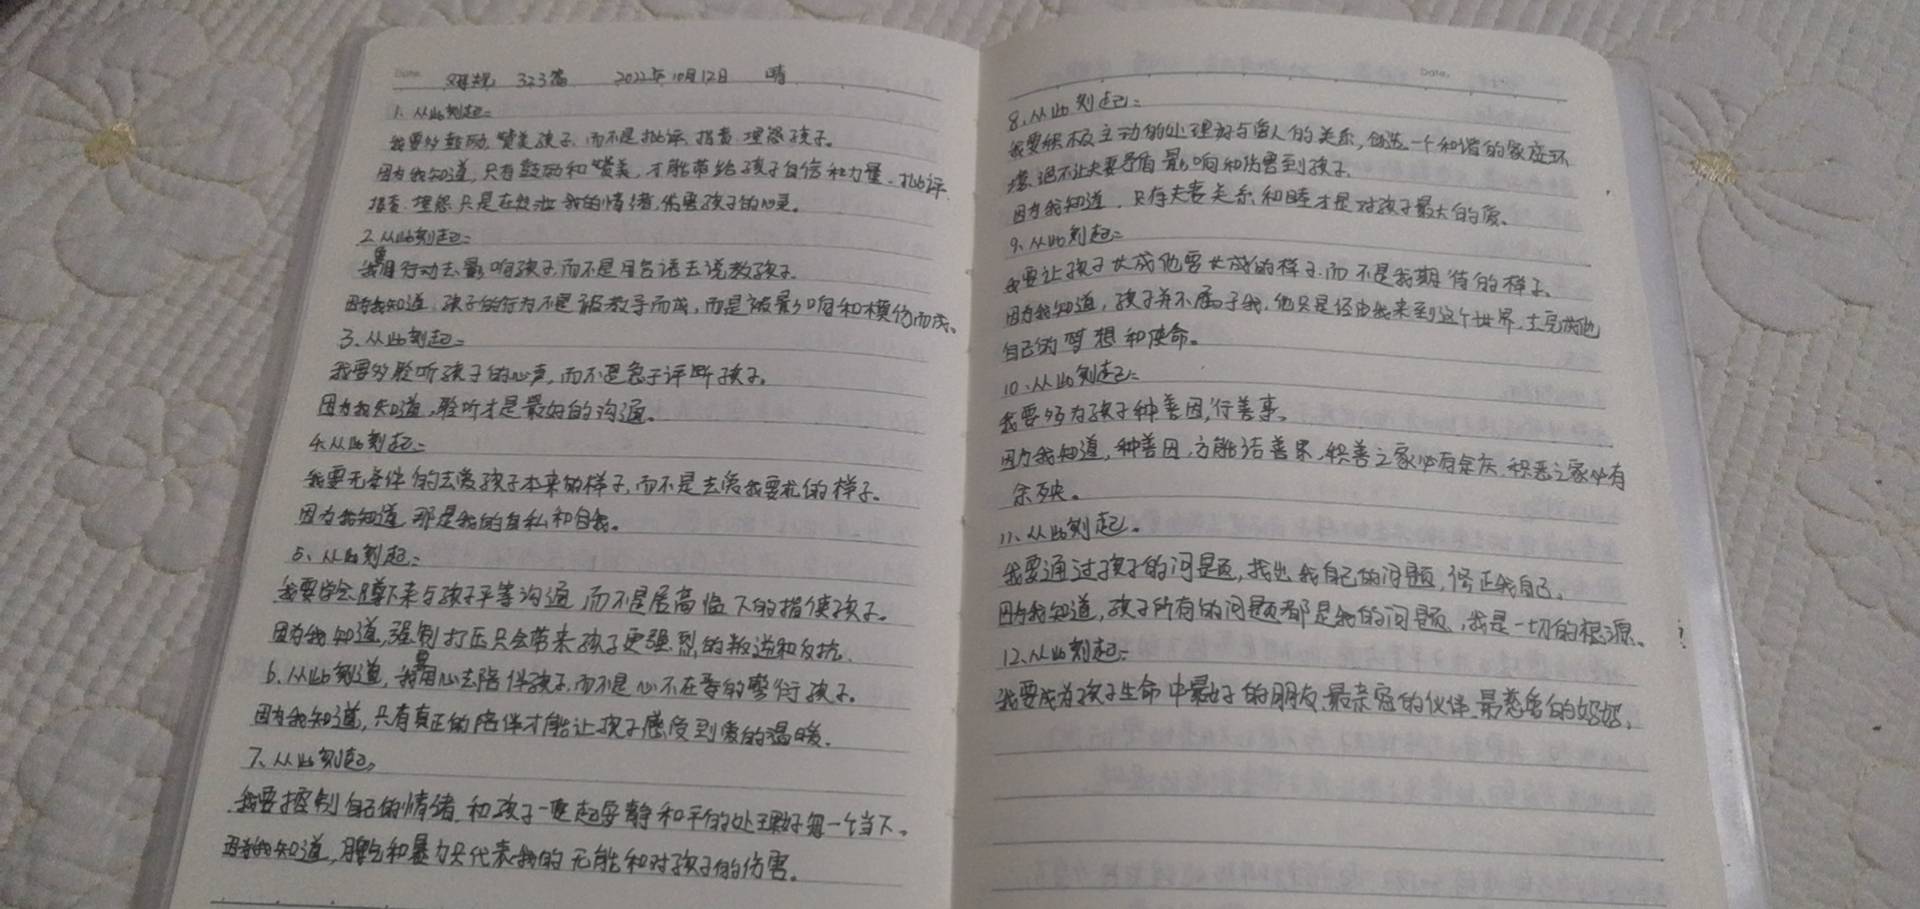 Date.
323篇 2022年10月12日 晴
1. 从此刻起：
我要多鼓励、赞美孩子，而不是批评、指责、埋怨孩子。
因为我知道，只有鼓励和赞美，才能带给孩子自信和力量，批评、
指责、埋怨只是在发泄我的情绪，伤害孩子的心灵。
2. 从此刻起：
我要用行动去影响孩子，而不是用言语去说教孩子。
因为我知道，孩子的行为不是被教导而成，而是被影响和模仿而成。
3、从此刻起：
我要多聆听孩子的心声，而不是急于评断孩子。
因为我知道，聆听才是最好的沟通。
4.从此刻起：
我要无条件的去爱孩子本来的样子，而不是去爱我要求的样子。
因为我知道，那是我的自私和自我。
5、从此刻起：
我要学会蹲下来与孩子平等沟通，而不是居高临下的指使孩子。
因为我知道，强制打压只会带来孩子更强烈的叛逆和反抗。
6、从此刻道，我要用心去陪伴孩子，而不是心不在焉的敷衍孩子。
因为我知道，只有真正的陪伴才能让孩子感受到爱的温暖。
7、从此刻起，
我要控制自己的情绪，和孩子一起安静和平的处理好每一个当下。
因为我知道，脾气和暴力只代表我的无能和对孩子的伤害。
Date.
8、从此刻起：
我要积极主动的处理好与爱人的关系，创造一个和谐的家庭环
境，绝不让夫妻矛盾影响和伤害到孩子。
因为我知道，只有夫妻关系和睦才是对孩子最大的爱。
9、从此刻起：
我要让孩子长成他要长成的样子，而不是我期待的样子。
因为我知道，孩子并不属于我，他只是经由我来到这个世界，去完成他
自己的梦想和使命。
10、从此刻起：
我要多为孩子种善因，行善事。
因为我知道，种善因，方能结善果，积善之家必有余庆，积恶之家必有
余殃。
11、从此刻起。
我要通过孩子的问题，找出我自己的问题，修正我自己。
因为我知道，孩子所有的问题都是我的问题，我是一切的根源。
12、从此刻起：
我要成为孩子生命中最好的朋友、最亲密的伙伴、最慈爱的妈妈。